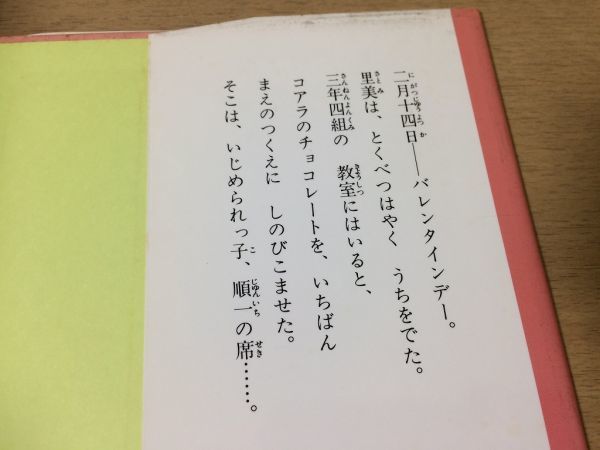 二月十四日――バレンタインデー。
里美は、とくべつはやく　うちをでた。
三年四組の　教室にはいると、
コアラのチョコレートを、いちばん
まえのつくえに　しのびこませた。
そこは、いじめられっ子、順一の席……。